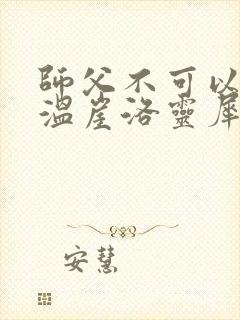 師父不可以
溫崖洛靈犀
安慧